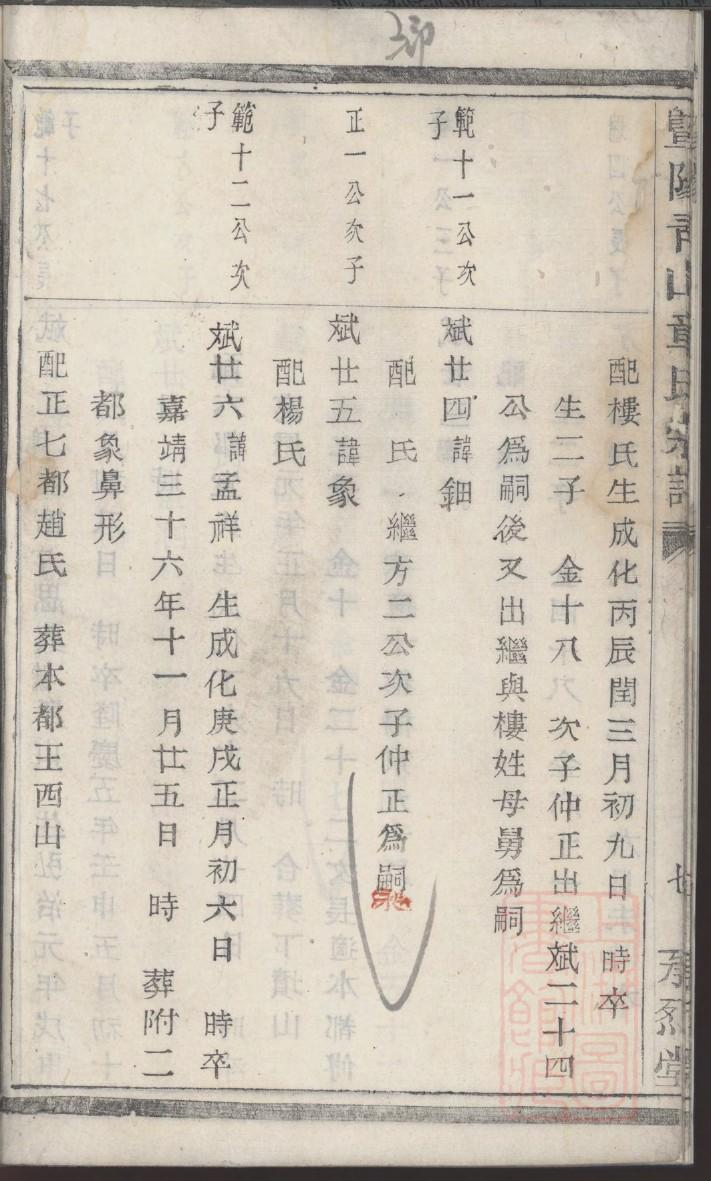 暨陽青山章氏宗譜
七
配樓氏生成化丙辰閏三月初九日 時卒
生二子 金十八 次子仲正出繼斌二十四
公爲嗣後又出繼與樓姓母舅爲嗣
範十一公次子
斌廿四諱鈿
配 氏 繼方二公次子仲正爲嗣
正一公次子
斌廿五諱象
配楊氏
範十二公次子
斌廿六諱孟祥 生成化庚戌正月初六日 時卒
嘉靖三十六年十一月廿五日 時 葬附二
都象鼻形
配正七都趙氏 葬本都王西山